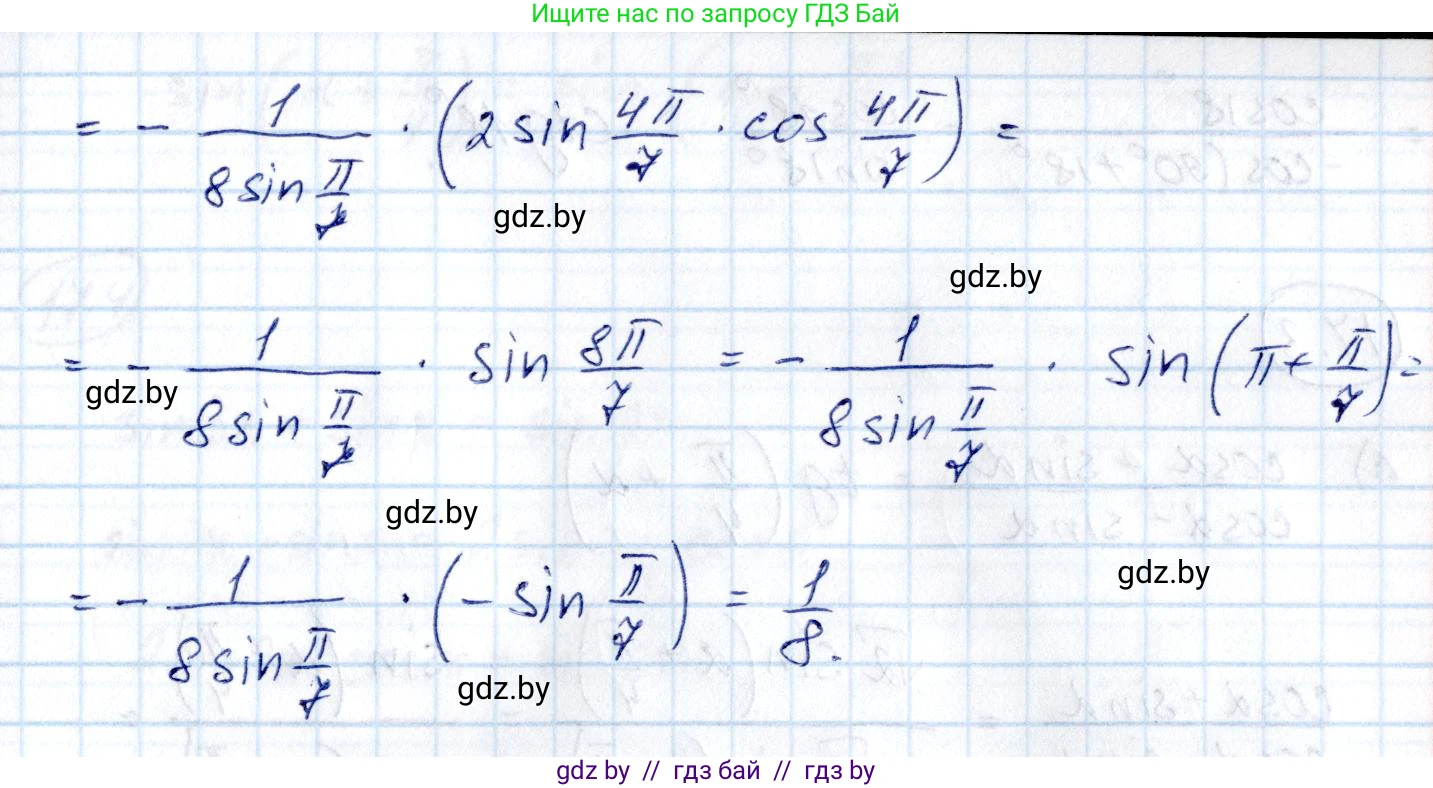 Ищите нас по запросу ГДЗ Бай
= - 1/(8 sin π/7) · (2 sin 4π/7 · cos 4π/7) =
gdz.by
gdz.by
= - 1/(8 sin π/7) · sin 8π/7 = - 1/(8 sin π/7) · sin (π + π/7) =
gdz.by
gdz.by
= - 1/(8 sin π/7) · (- sin π/7) = 1/8.
gdz.by
gdz.by
gdz by // гдз бай // гдз by